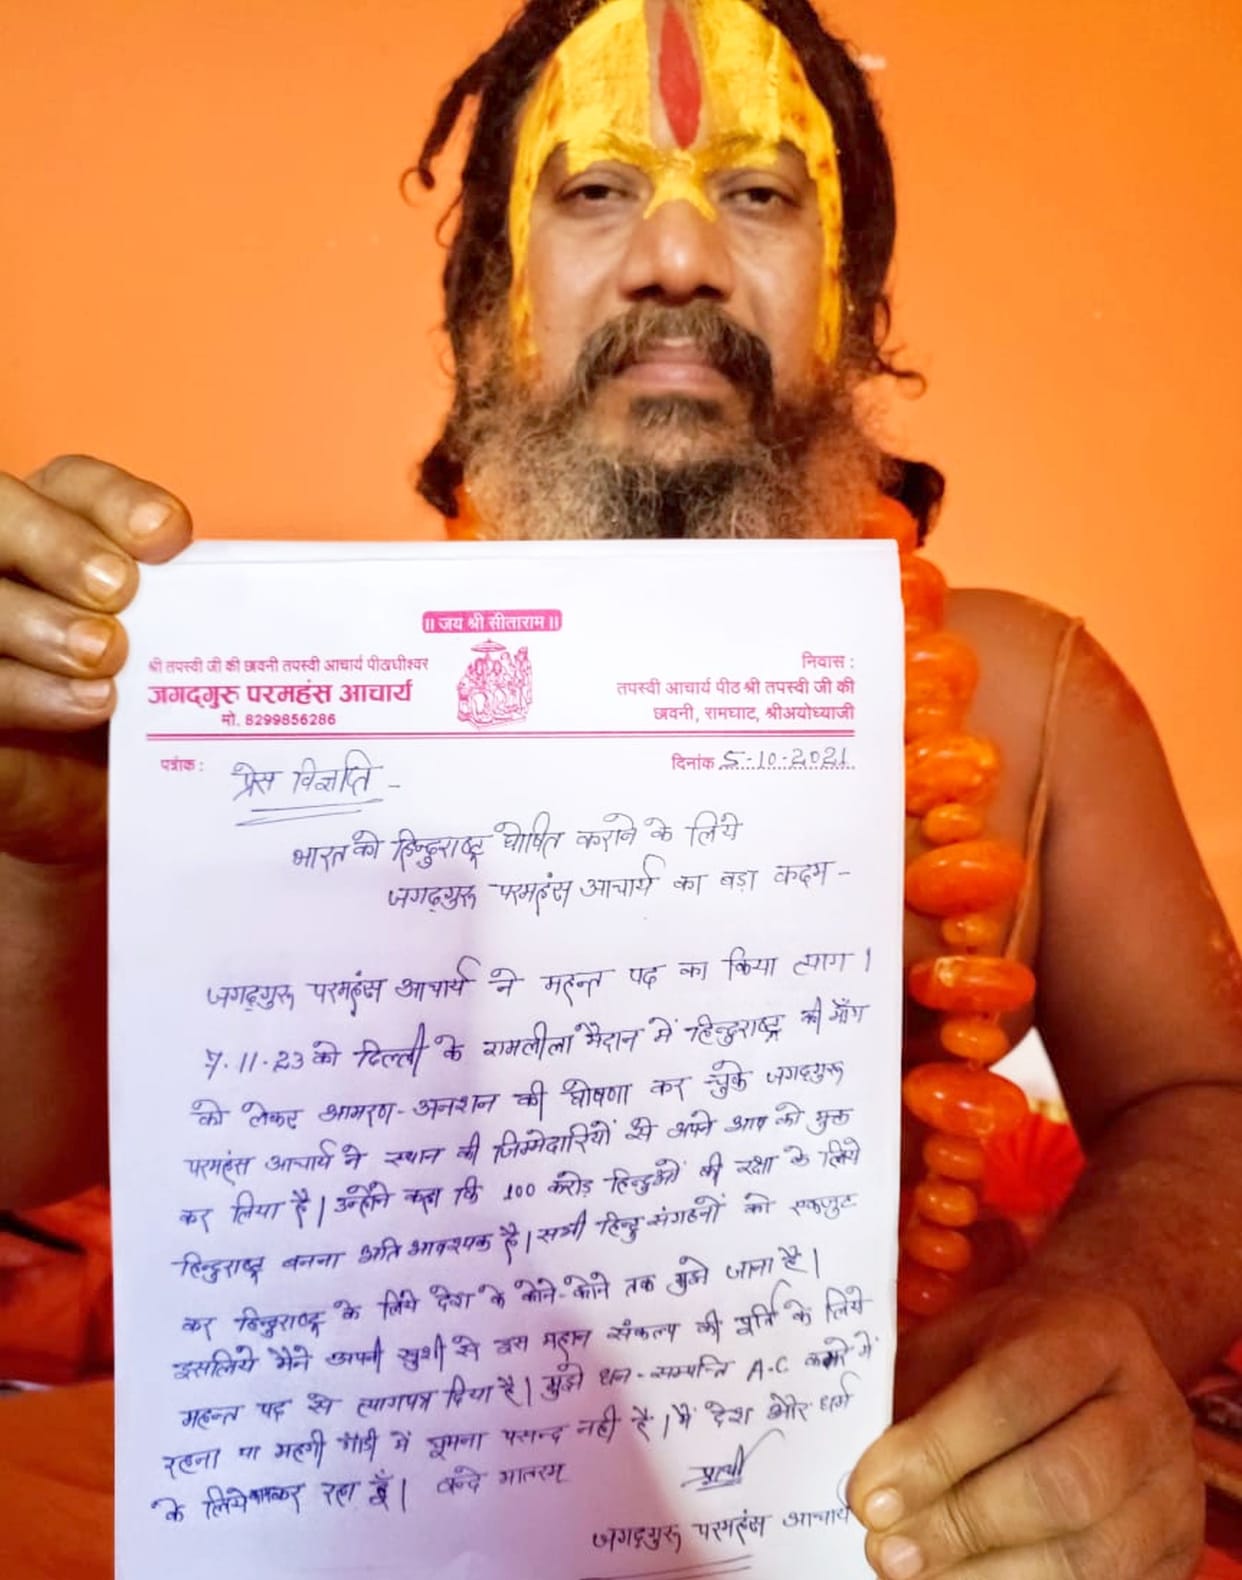 ॥ जय श्री सीताराम ॥
श्री तपस्वी जी की छावनी तपस्वी आचार्य पीठाधीश्वर
जगद्गुरु परमहंस आचार्य
मो. 8299856286
निवास :
तपस्वी आचार्य पीठ श्री तपस्वी जी की
छावनी, रामघाट, श्रीअयोध्याजी
पत्रांक :
दिनांक 5-10-2021
प्रेस विज्ञप्ति -
भारत को हिन्दुराष्ट्र घोषित कराने के लिये
जगद्गुरू परमहंस आचार्य का बड़ा कदम -
जगद्गुरू परमहंस आचार्य ने महन्त पद का किया त्याग ।
7.11.23 को दिल्ली के रामलीला मैदान में हिन्दुराष्ट्र की माँग
को लेकर आमरण-अनशन की घोषणा कर चुके जगद्गुरू
परमहंस आचार्य ने स्थान की जिम्मेदारियों से अपने आप को मुक्त
कर लिया है। उन्होंने कहा कि 100 करोड़ हिन्दुओं की रक्षा के लिये
हिन्दुराष्ट्र बनना अति आवश्यक है। सभी हिन्दु संगठनों को एकजुट
कर हिन्दुराष्ट्र के लिये देश के कोने-कोने तक मुझे जाना है।
इसलिये मैने अपनी खुशी से इस महान संकल्प की पूर्ति के लिये
महन्त पद से त्यागपत्र दिया है। मुझे धन-सम्पत्ति A.C कमरे में
रहना या महगी गाडी में घूमना पसन्द नही है। मैं देश और धर्म
के लिये कर रहा हूँ। वन्दे मातरम्
प्रार्थी
जगद्गुरू परमहंस आचार्य